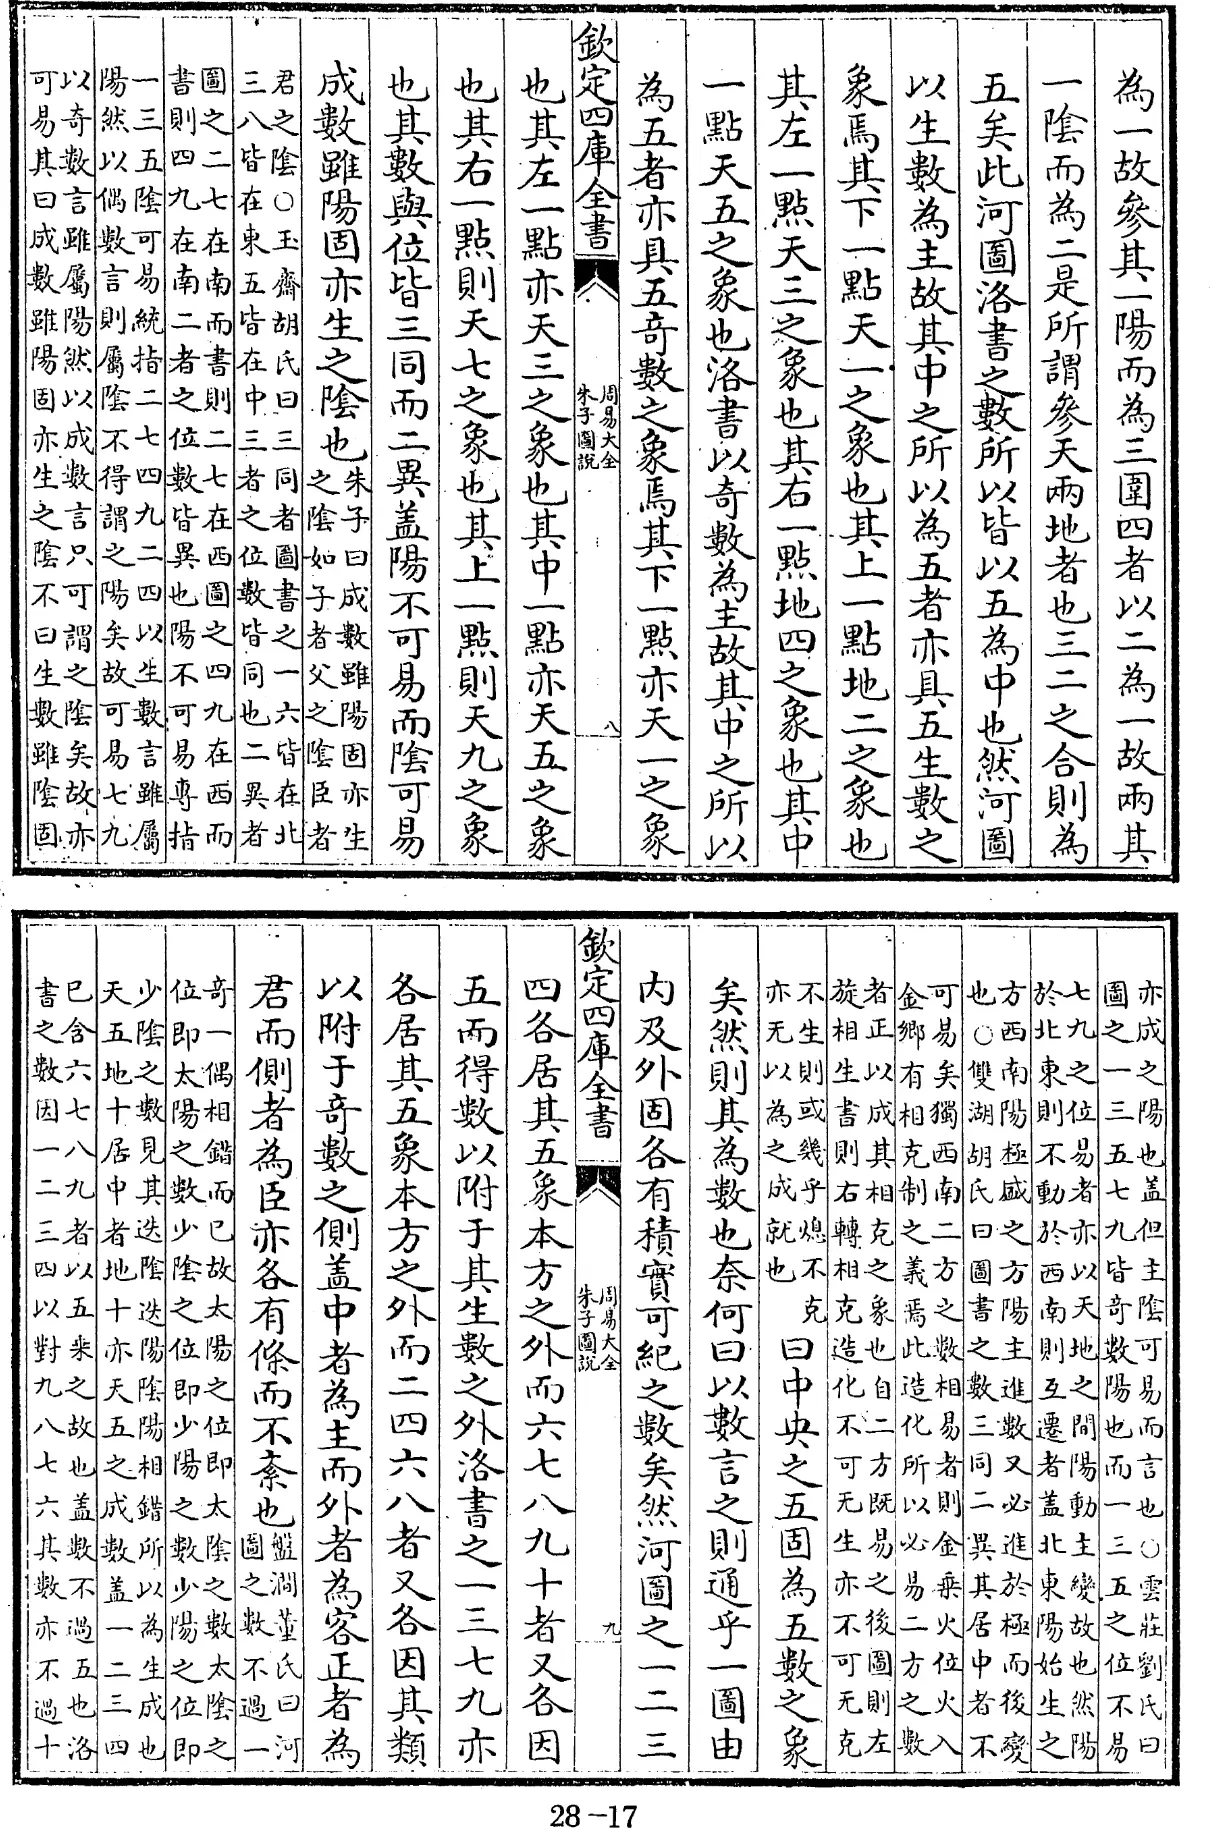 為一故參其一陽而為三圍四者以二為一故兩其
一陰而為二是所謂參天兩地者也三二之合則為
五矣此河圖洛書之數所以皆以五為中也然河圖
以生數為主故其中之所以為五者亦具五生數之
象焉其下一點天一之象也其上一點地二之象也
其左一點天三之象也其右一點地四之象也其中
一點天五之象也洛書以奇數為主故其中之所以
為五者亦具五奇數之象焉其下一點亦天一之象
欽定四庫全書
周易大全
朱子圖說
八
也其左一點亦天三之象也其中一點亦天五之象
也其右一點則天七之象也其上一點則天九之象
也其數與位皆三同而二異盖陽不可易而陰可易
成數雖陽固亦生之陰也
朱子曰成數雖陽固亦生
之陰如子者父之陰臣者
君之陰○玉齋胡氏曰三同者圖書之一六皆在北
三八皆在東五皆在中三者之位數皆同也二異者
圖之二七在南而書則二七在西圖之四九在西而
書則四九在南二者之位數皆異也陽不可易專指
一三五陰可易統指二七四九二四以生數言雖屬
陽然以偶數言則屬陰不得謂之陽矣故可易七九
以奇數言雖屬陽然以成數言只可謂之陰矣故亦
可易其曰成數雖陽固亦生之陰不曰生數雖陰固
亦成之陽也盖但主陰可易而言也○雲莊劉氏曰
圖之一三五七九皆奇數陽也而一三五之位不易
七九之位易者亦以天地之間陽動主變故也然陽
於北東則不動於西南則互遷者盖北東陽始生之
方西南陽極盛之方陽主進數又必進於極而後變
也○雙湖胡氏曰圖書之數三同二異其居中者不
可易矣獨西南二方之數相易者則金乗火位火入
金鄉有相克制之義焉此造化所以必易二方之數
者正以成其相克之象也自二方既易之後圖則左
旋相生書則右轉相克造化不可无生亦不可无克
不生則或幾乎熄不克
亦无以為之成就也
曰中央之五固為五數之象
矣然則其為數也奈何曰以數言之則通乎一圖由
内及外固各有積實可紀之數矣然河圖之一二三
欽定四庫全書
周易大全
朱子圖說
九
四各居其五象本方之外而六七八九十者又各因
五而得數以附于其生數之外洛書之一三七九亦
各居其五象本方之外而二四六八者又各因其類
以附于奇數之側盖中者為主而外者為客正者為
君而側者為臣亦各有條而不紊也
盤澗董氏曰河
圖之數不過一
奇一偶相錯而已故太陽之位即太陰之數太陰之
位即太陽之數少陰之位即少陽之數少陽之位即
少陰之數見其迭陰迭陽陰陽相錯所以為生成也
天五地十居中者地十亦天五之成數盖一二三四
已含六七八九者以五乗之故也盖數不過五也洛
書之數因一二三四以對九八七六其數亦不過十
28-17